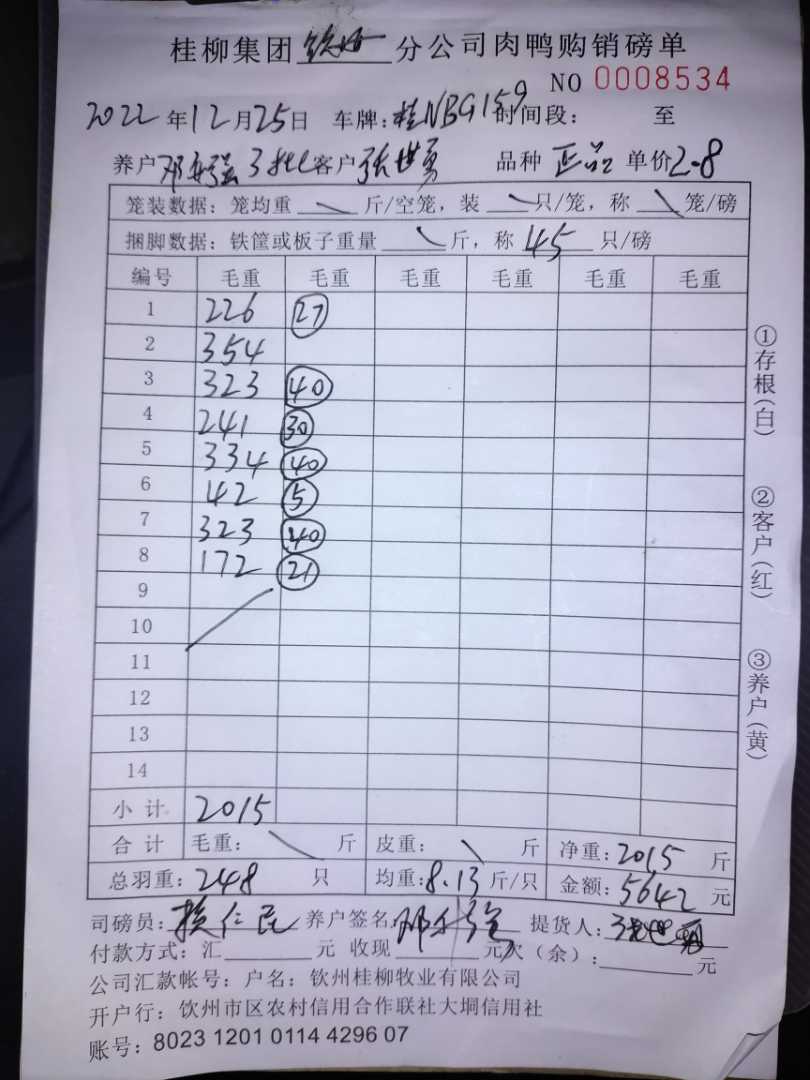 桂柳集团 钦州 分公司肉鸭购销磅单
NO 0008534
2022年12月25日 车牌:桂NBG159 时间段: 至
养户 邓 强 3批 客户 张世勇 品种 正品 单价 2-8
笼装数据:笼均重 斤/空笼,装 只/笼,称 笼/磅
捆脚数据:铁筐或板子重量 斤,称 45 只/磅
编号 毛重 毛重 毛重 毛重 毛重 毛重
1 226 27
2 354
3 323 40
4 241 30
5 334 40
6 42 5
7 323 40
8 172 21
9
10
11
12
13
14
小计 2015
合计 毛重: 斤 皮重: 斤 净重:2015 斤
总羽重:248 只 均重:8.13 斤/只 金额:5642 元
司磅员: 仁民 养户签名 邓 强 提货人:张世勇
付款方式:汇 元 收现 元 欠(余): 元
公司汇款帐号:户名:钦州桂柳牧业有限公司
开户行:钦州市区农村信用合作联社大垌信用社
账号:8023 1201 0114 4296 07
①存根(白)
②客户(红)
③养户(黄)